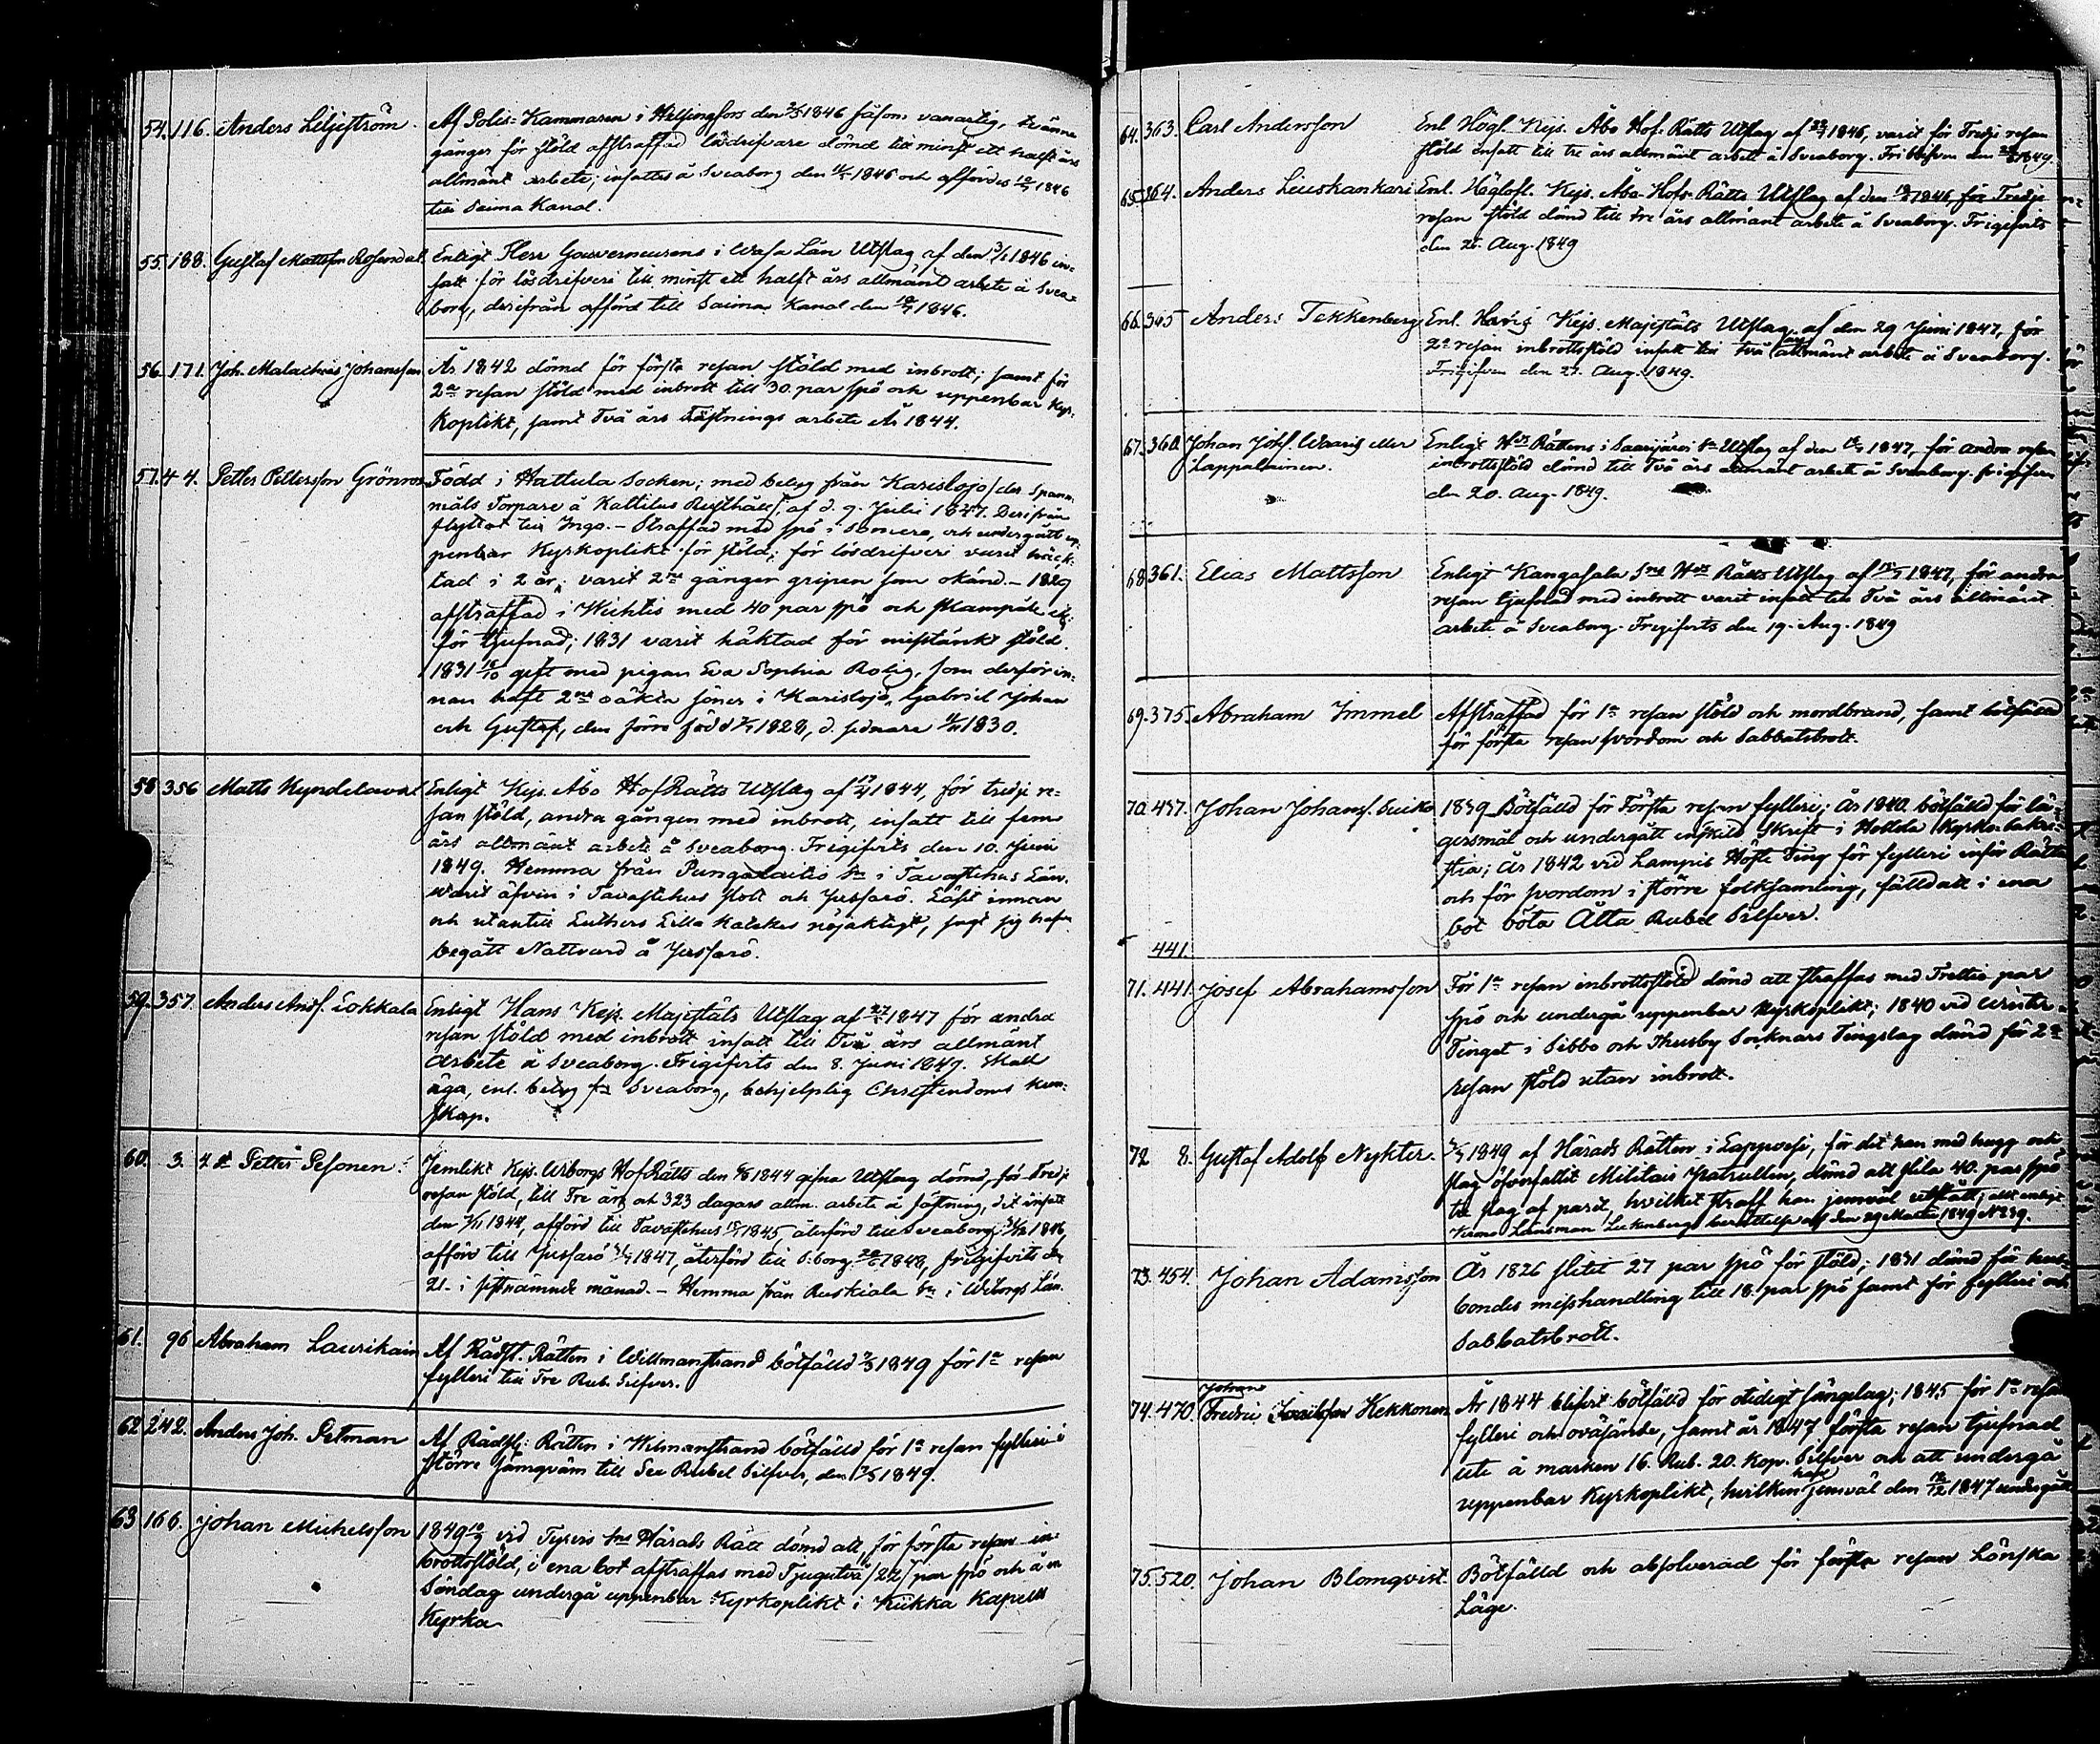 54. 116. Anders Liljeström. Af Polis-Kammaren i Helsingfors den 2/5 1846 såsom vanartig, tvänne
gånger för stöld afstraffad lösdrifvare dömd till minst ett halft års
allmänt arbete; insattes å Sveaborg den 1846 och affördes 1846
till Saima Kanal.
55. 188. Gustaf Mattsson Rosendal. Enligt Herr Gouverneurens i Wasa Län Utslag af den 1846 in-
satt för lösdrifveri till minst ett halft års allmänt arbete å Svea-
borg, derifrån afförd till Saima Kanal den 1846.
56. 171. Joh. Malachias Johansson År 1842 dömd för första resan stöld med inbrott; samt för
2a resan stöld med inbrott till 30 par spö och uppenbar Kyr-
koplikt, samt Två års Fästnings arbete År 1844.
57. 44. Petter Pettersson Grönroos Född i Hattula Socken; med betyg från Karislojo /der Spann-
måls Torpare å Kattilus Rusthåll/ af d. 9. Julii 1827. Derifrån
flyttat till Ingo. – Straffad med spö i Somero, och undergått up-
penbar Kyrkoplikt för stöld; för lösdrifveri varit häck-
tad i 2 år; varit 2ne gånger gripen som okänd. – 1829
afstraffad i Wichtis med 40 par spö och
för tjufnad; 1831 varit häktad för misstänkt stöld.
1831 18/10 gift med pigan Eva Sophia Rolig, som derförin-
nan haft 2ne oäkta söner i Karislojo, Gabriel Johan
och Gustaf, den förre född 1828, d. sednare 1830.
58 356 Matts Kyndelaval Enligt Kejs. Åbo HofRätts Utslag af 1844, för tredje re-
san stöld, andra gången med inbrott, insatt till fem
års allmänt arbete å Sveaborg. Frigifvits den 10. Juni
1849. Hemma från Pungalaitio Sn i Tavastehus Län.
Varit äfven i Tavastehus slott och Jussarö. Läst innan
och utantill Luthers Lilla Kateches nöjaktigt, sagt sig hafva
begått Nattvard å Jussarö.
59. 357. Anders Andss. Lokkala Enligt Hans Kejs. Majestäts Utslag af 1847 för andra
resan stöld med inbrott insatt till Två års allmänt
arbete å Sveaborg. Frigifvits den 8. Juni 1849. Skall
äga, enl. betyg fr. Sveaborg, behjelplig Christendoms kun-
skap.
60. 3. Petter Pesonen. Jemlikt Kejs. Wiborgs HofRätts den 1844 gifna Utslag dömd, för tredje
resan stöld, till Tre år och 323 dagars allm. arbete å fästning, dit insatt
den 1844, afförd till Tavastehus 1845, återförd till Sveaborg 1846,
afförd till Jussarö 1847, återförd till S:borg 1848, frigifvits den
21. i sistnämnde månad. – Hemma från Ruskiala Sn i Wiborgs Län.
61. 96 Abraham Laurikain Af Rådst. Rätten i Willmanstrand bötfälld 1849 för 1a resan
fylleri till Tre Rub. Silfver.
62 242. Anders Joh. Petman Af Rådst: Rätten i Wilmanstrand bötfälld för 1a resan fylleri i
större samqväm till Sex Rubel Silfver, den 1849.
63 166. Johan Michelsson 1849 vid Tyrvis Sns Härads Rätt dömd att, för första resan in-
brottsstöld, i ena bot afstraffas med Tjugutvå /22/ par spö och å en
Söndag undergå uppenbar Kyrkoplikt i Kiikka Kapells
Kyrka
64. 363. Carl Andersson Enl Högl. Kejs. Åbo Hof-Rätts Utslag af 1846, varit för Tredje resan
stöld insatt till tre års allmänt arbete å Sveaborg. Friblifven den 1849.
65. 364. Anders Liuskankari Enl. Höglofl. Kejs. Åbo Hofs-Rätts Utslag af den 1846, för Tredje
resan stöld dömd till tre års allmänt arbete å Sveaborg. Frigifvits
den 25. Aug. 1849
66. 365 Anders Tekkenberg Enl. Hans Kejs. Majestäts Utslag af den 29 Juni 1847, för
2a resan inbrottsstöld insatt till två års allmänt arbete å Sveaborg.
Frigifven den 27. Aug. 1849.
67. 360. Johan Josf. Waaris eller Enligt Hds Rättens i Saarijärvi Sn Utslag af den 1847, för andra resan
Lappalainen. inbrottsstöld dömd till Två års allmänt arbete å Sveaborg. frigifven
den 20. Aug. 1849.
68. 361. Elias Mattsson Enligt Kangasala Sns Hds Rätts Utslag af 1847, för andra
resan tjufnad med inbrott varit insatt till Två års allmänt
arbete å Sveaborg. Fregifvits den 19. Aug. 1849
69. 375. Abraham Immel Afstraffad för 1a resan stöld och mordbrand, samt bötfälld
för första resan svordom och Sabbatsbrott.
70. 437. Johan Johanss. Suiko 1839 Bötfälld för Första resan fylleri; År 1840 bötfälld för lä-
gersmål och undergått enskild Skrift i Hollola Kyrko-Sakri-
stia; År 1842 vid Lampis Höste Ting för fylleri inför Rätta
och för svordom i större folksamling, fälld att i ena
bot böta Åtta Rubel Silfver.
441.
71. 441. Josef Abrahamsson För 1a resan inbrottsstöld dömd att straffas med Trettio par
spö och undergå uppenbar Kyrkoplikt; 1840 vid Winter-
Tinget i Sibbo och Thusby Socknars Tingslag dömd för 2a
resan stöld utan inbrott.
72 8. Gustaf Adolf Nykter. 1849 af Härads Rätten i Lappvesi, för det han med hugg och
slag öfverfallit Militair Patrullen, dömd att slita 40. par spö
tre slag af paret, hvilket straff han jemväl utstått; allt enligt
Krono Länsman berättelse af den 29 Martii 1849 No 239.
73. 454. Johan Adamsson År 1826 slitit 27 par spö för stöld; 1831 dömd för hus-
bondes misshandling till 18. par spö samt för fylleri och
Sabbatsbrott.
74. 470. Johan Fredric Hekkonen År 1844 blifvit bötfälld för otidigt sängelag; 1845 för 1a resan
fylleri och oväsende, samt år 1847 första resan tjufnad
ute å marken 16. Rub. 20. Kop. Silfver och att undergå
uppenbar Kyrkoplikt, hvilken han jemväl den 1847 undergått
75. 520. Johan Blomqvist. Bötfälld och absolverad för första resan Lönska
Läge.